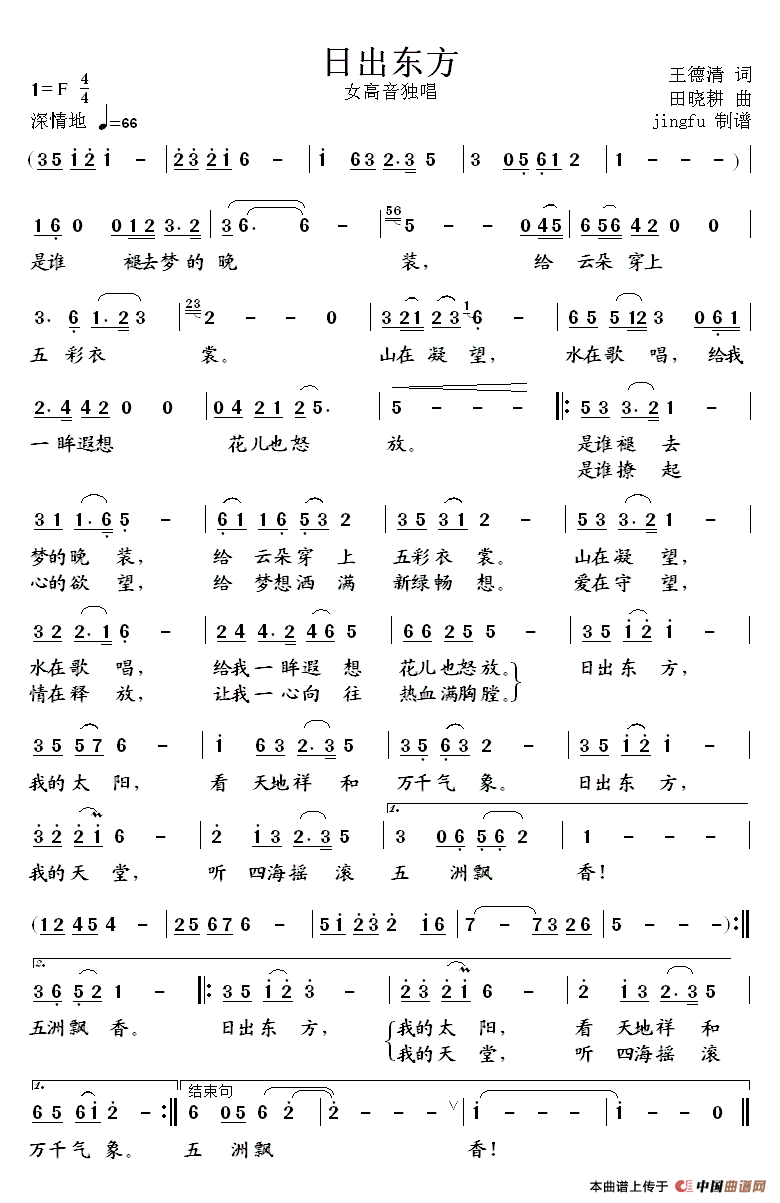 日出东方
女高音独唱
1=F 4/4
深情地 ♩=66
王德清 词
田晓耕 曲
jingfu 制谱
(35 i2 i - | 23 2i 6 - | i 63 2·3 5 | 3 05 61 2 | 1 - - - )
16 0 012 3·2 | 36· 6 - | 56 5 - - 045 | 656 42 0 0 |
是谁 褪去梦的晚 装， 给 云朵 穿上
3· 6 1·2 3 | 23 2 - - 0 | 321 23 1 6 - | 65 512 3 061 |
五 彩衣 裳。 山在 凝 望， 水在歌 唱，给我
2·4 42 0 0 | 04 21 25· | 5 - - - |: 53 3·2 1 - |
一眸遐想 花儿也怒 放。 是谁褪 去
是谁撩 起
31 1·6 5 - | 61 16 53 2 | 35 31 2 - | 53 3·2 3 - |
梦的晚 装， 给 云朵穿 上 五彩衣 裳。 山在凝 望，
心的欲 望， 给 梦想洒 满 新绿畅 想。 爱在守 望，
32 2·1 6 - | 24 4·2 46 5 | 66 25 5 - | 35 i2 i - |
水在歌 唱， 给我一眸遐 想 花儿也怒放。 日出东 方，
情在释 放， 让我一心向 往 热血满胸膛。
35 57 6 - | i 63 2·3 5 | 35 63 2 - | 35 i2 i - |
我的太 阳， 看 天地祥 和 万千气 象。 日出东 方，
32 2i 6 - | 2 i3 2·3 5 | 1. 3 06 56 2 | 1 - - - |
我的天 堂， 听 四海摇 滚 五 洲飘 香！
(12 45 4 - | 25 67 6 - | 5i 23 2 i6 | 7 - 73 26 | 5 - - - ) :|
2. 36 52 1 - |: 35 i2 3 - | 23 2i 6 - | 2 i3 2·3 5 |
五洲飘 香。 日出东 方， 我的太 阳， 看 天地祥 和
我的天 堂， 听 四海摇 滚
1. 65 6i 2 - :| 结束句 6 05 6 2 | 2 - - ∨ | i - - - | i - - 0 |
万千气 象。 五 洲飘 香！
本曲谱上传于 中国曲谱网